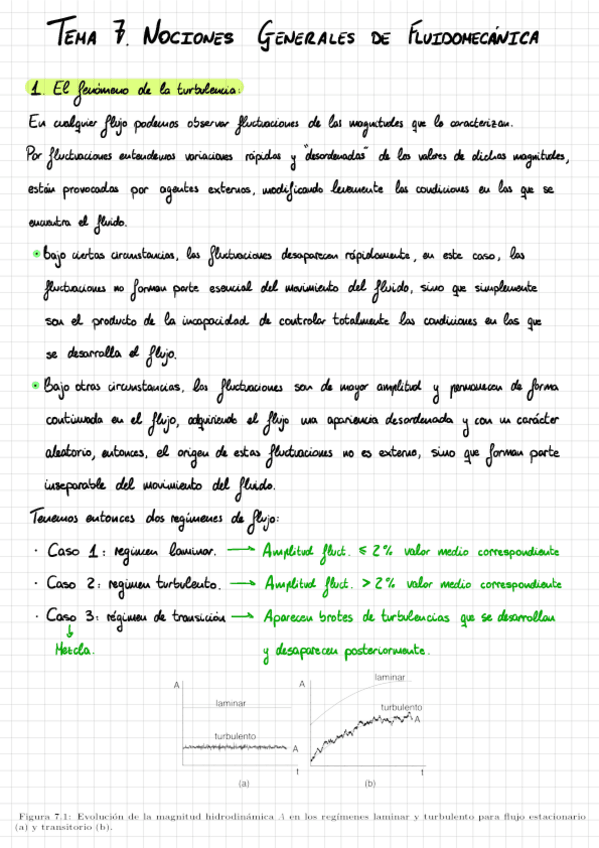 TEMA 7. NOCIONES GENERALES DE FLUIDOMECÁNICA
1. El fenómeno de la turbulencia:
En cualquier flujo podemos observar fluctuaciones de las magnitudes que lo caracterizan.
Por fluctuaciones entendemos variaciones rápidas y "desordenadas" de los valores de dichas magnitudes,
están provocadas por agentes externos, modificando levemente las condiciones en las que se
encuentra el fluido.
• Bajo ciertas circunstancias, las fluctuaciones desaparecen rápidamente, en este caso, las
fluctuaciones no forman parte esencial del movimiento del fluido, sino que simplemente
son el producto de la incapacidad de controlar totalmente las condiciones en las que
se desarrolla el flujo.
• Bajo otras circunstancias, las fluctuaciones son de mayor amplitud y permanecen de forma
continuada en el flujo, adquiriendo el flujo una apariencia desordenada y con un carácter
aleatorio, entonces, el origen de estas fluctuaciones no es externo, sino que forman parte
inseparable del movimiento del fluido.
Tenemos entonces dos regímenes de flujo:
· Caso 1: regimen laminar. → Amplitud fluct. ≤ 2% valor medio correspondiente
· Caso 2: regimen turbulento. → Amplitud fluct. > 2% valor medio correspondiente
· Caso 3: régimen de transición → Aparecen brotes de turbulencias que se desarrollan
↓
Mezcla. y desaparecen posteriormente.
A laminar turbulento A t (a)
A laminar turbulento A t (b)
Figura 7.1: Evolución de la magnitud hidrodinámica A en los regímenes laminar y turbulento para flujo estacionario
(a) y transitorio (b).